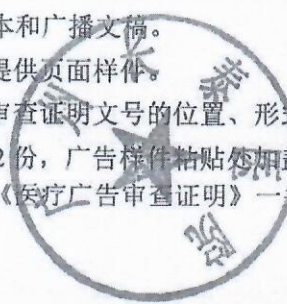 本和广播文稿。
提供页面样件。
审查证明文号的位置、形式
2份，广告样件粘贴处加盖
《医疗广告审查证明》一
广州长泰医院